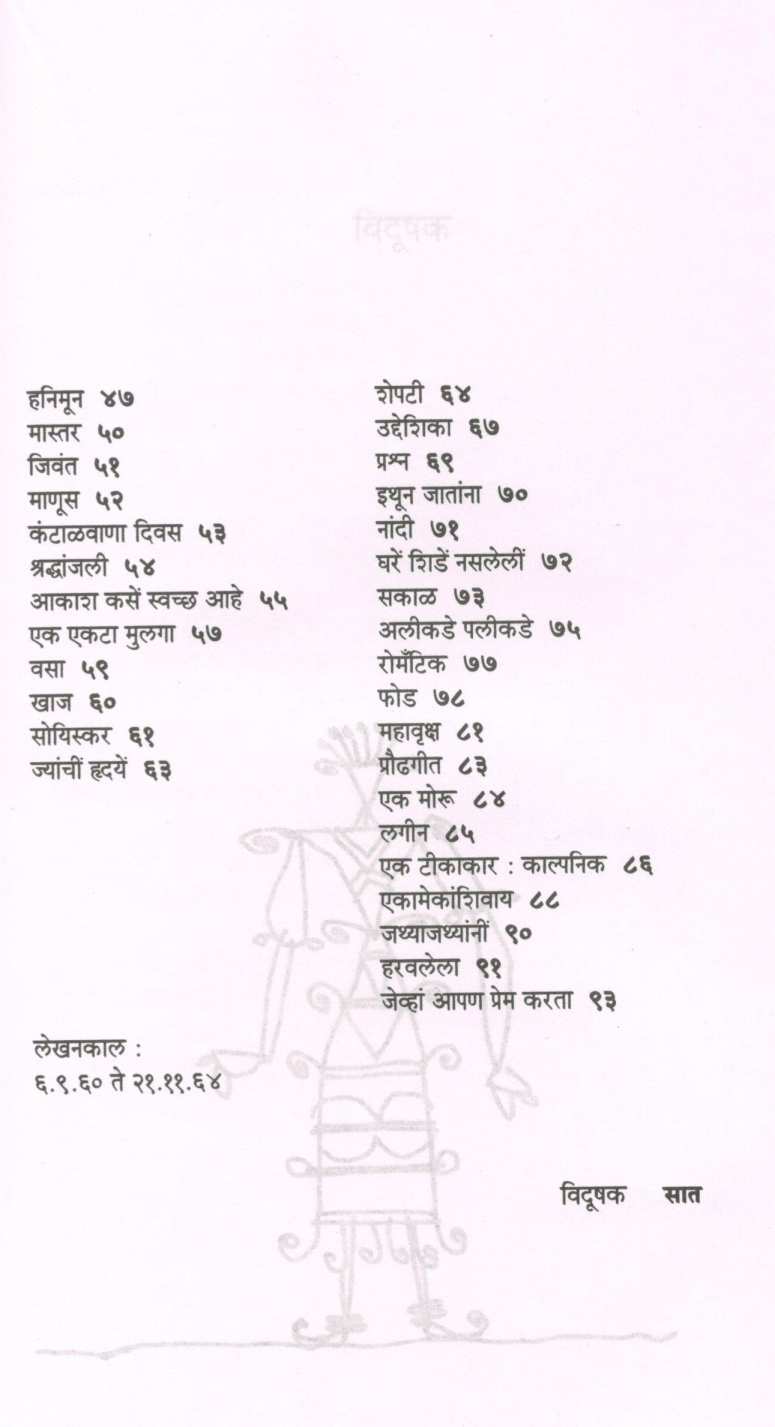 विदूषक
हनिमून ४७
मास्तर ५०
जिवंत ५१
माणूस ५२
कंटाळवाणा दिवस ५३
श्रद्धांजली ५४
आकाश कसें स्वच्छ आहे ५५
एक एकटा मुलगा ५७
वसा ५९
खाज ६०
सोयिस्कर ६१
ज्यांचीं हृदयें ६३
शेपटी ६४
उद्देशिका ६७
प्रश्न ६९
इथून जातांना ७०
नांदी ७१
घरें शिडें नसलेलीं ७२
सकाळ ७३
अलीकडे पलीकडे ७५
रोमँटिक ७७
फोड ७८
महावृक्ष ८१
प्रौढगीत ८३
एक मोरू ८४
लगीन ८५
एक टीकाकार : काल्पनिक ८६
एकामेकांशिवाय ८८
जथ्याजथ्यांनीं ९०
हरवलेला ९१
जेव्हां आपण प्रेम करता ९३
लेखनकाल :
६.९.६० ते २१.११.६४
विदूषक सात